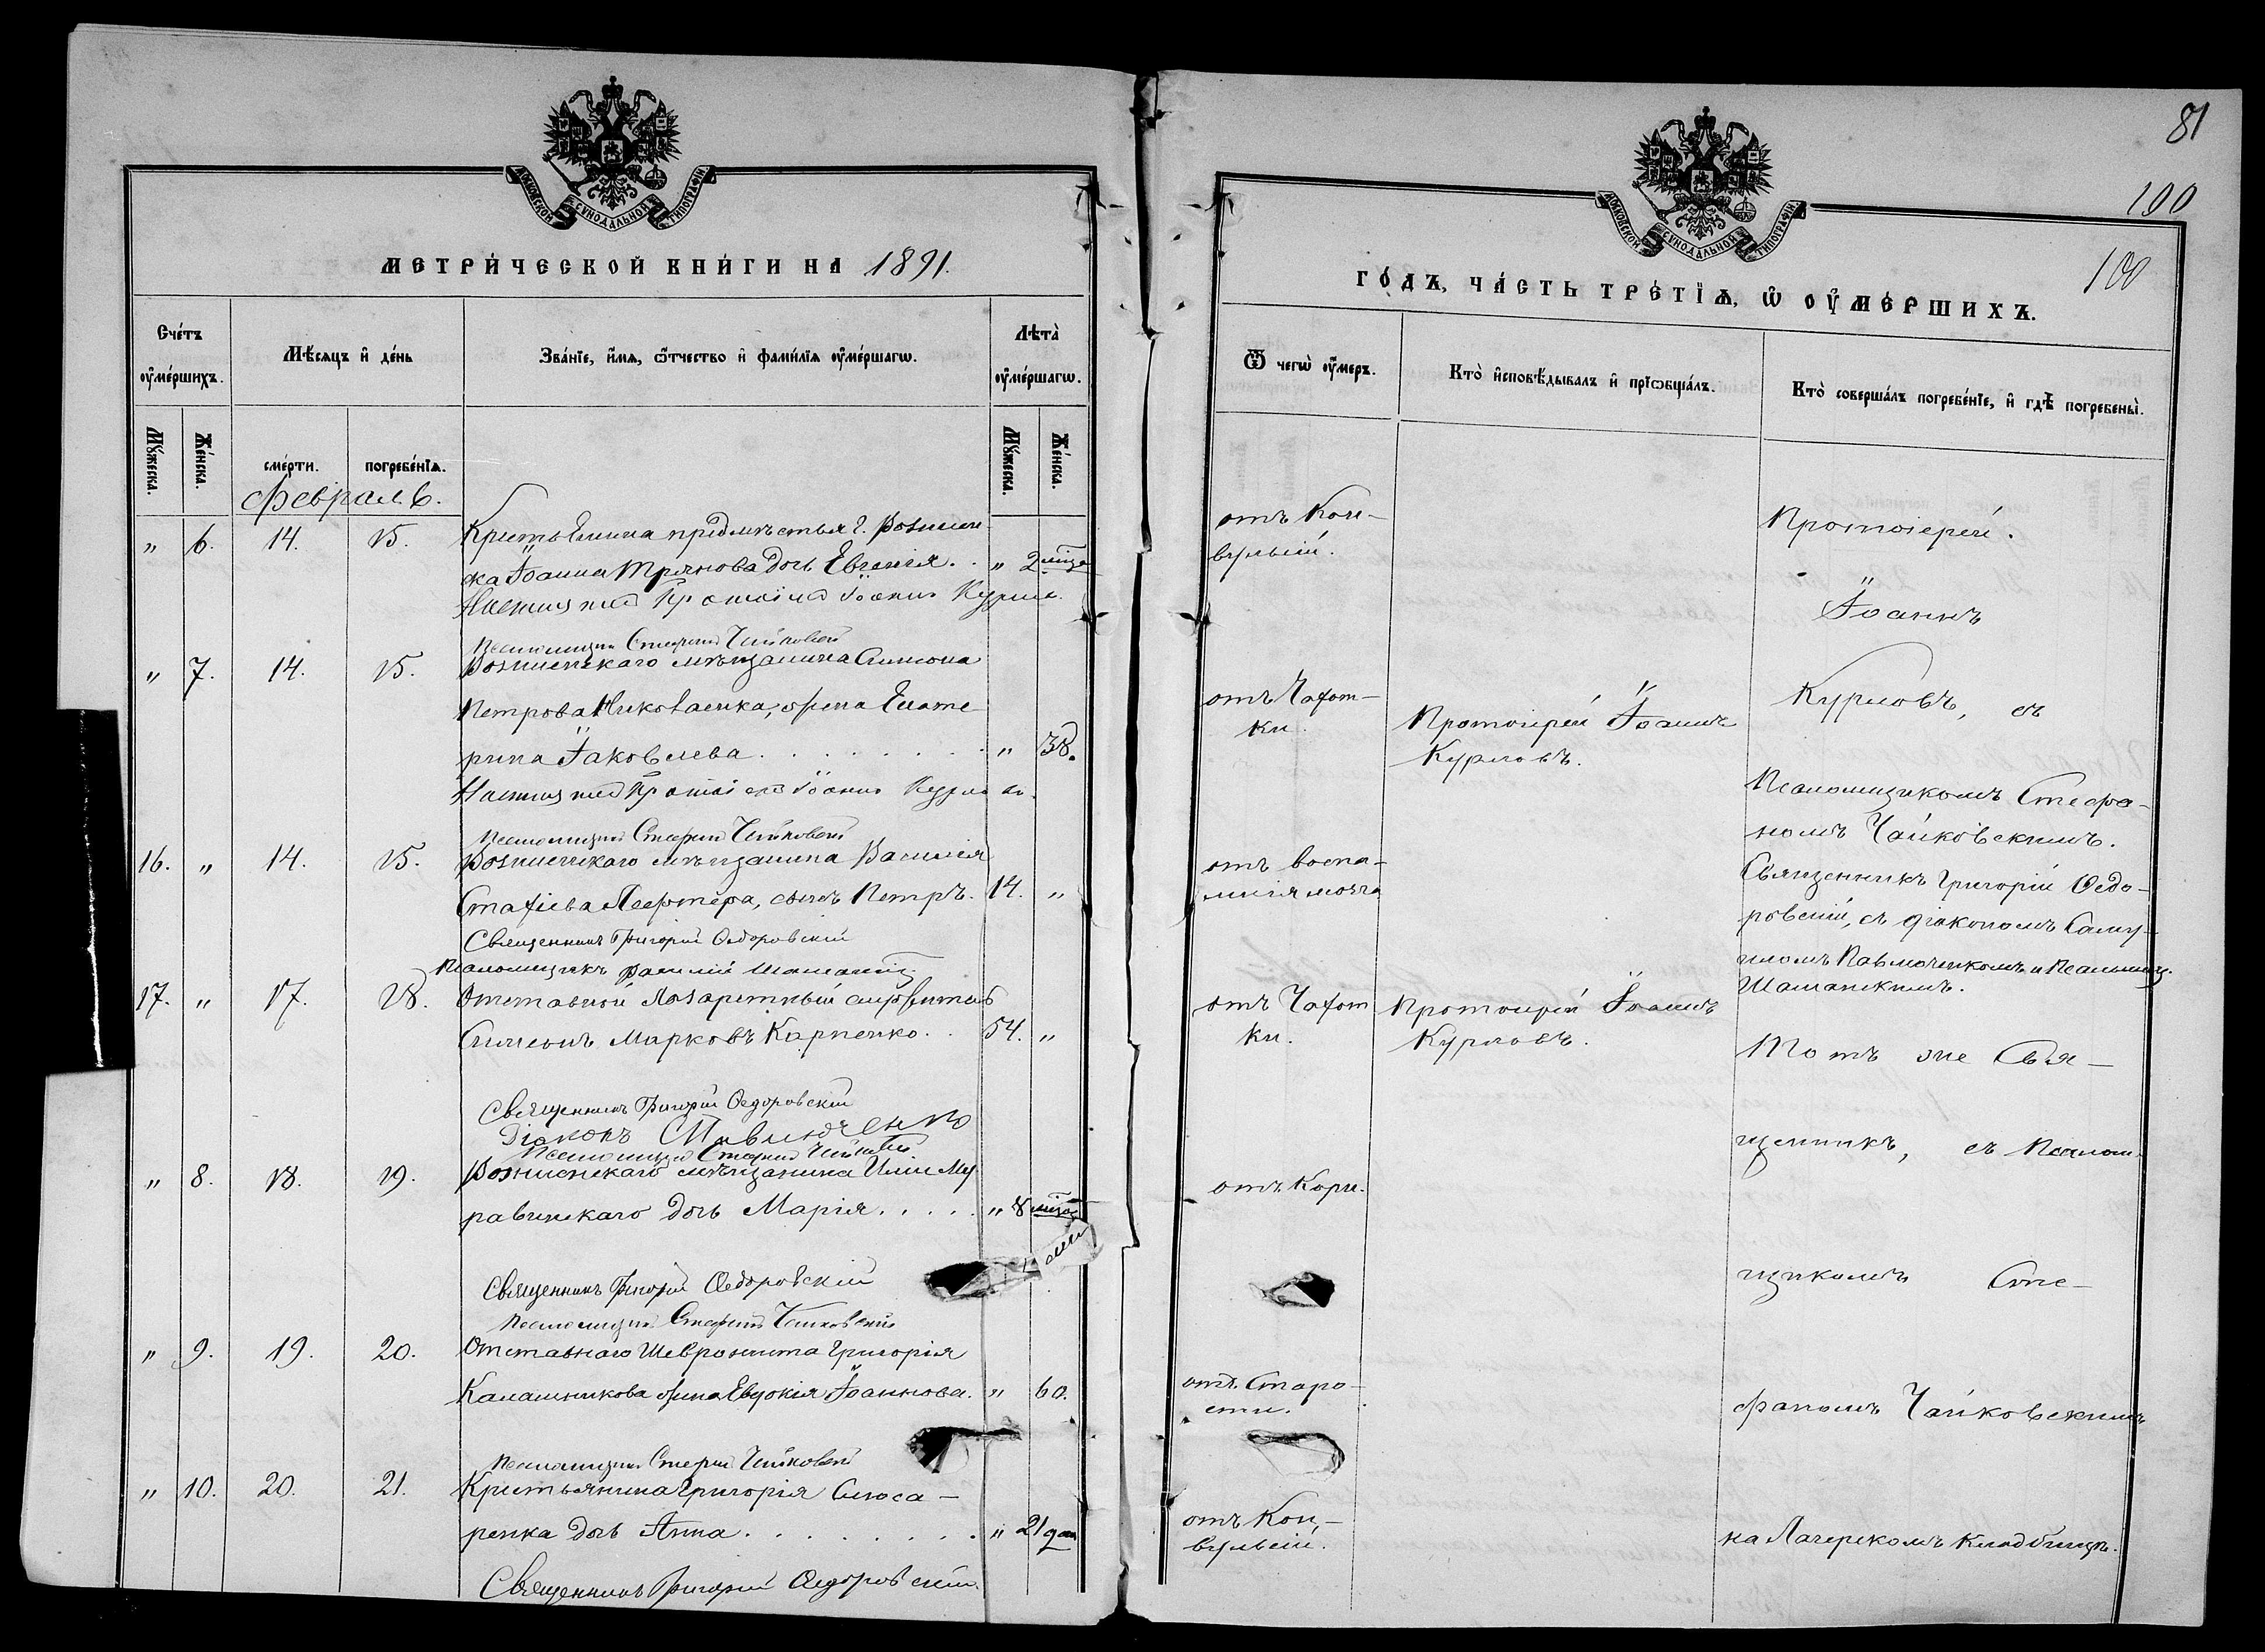 МОСКОВСКОЙ СѴНОДАЛЬНОЙ ТИПОГРАФІИ.
МЕТРИ́ЧЕСКОЙ КНИ́ГИ НА 1891.
Сче́тъ ᲂу҆ме́ршихъ.
Мѣ́сяцъ и҆ де́нь
Зва́нїе, и҆́мѧ, ѻ҆́тчество и҆ фами́лїѧ ᲂу҆ме́ршагѡ.
Лѣта̀ ᲂу҆ме́ршагѡ.
Мꙋ́жеска.
Же́нска.
сме́рти.
погребе́нїѧ.
Мꙋ́жеска.
Же́нска.
Февраль.
" 6. 14. 15. Крестьянина предмѣстья г. Вознесен-
ска Іоанна Трянова дочь Евгенія. . " 2 мѣс.
Протоіерей Іоаннъ Курловъ
Псаломщикъ Стефанъ Чайковскій
" 7. 14. 15. Вознесенскаго мѣщанина Симеона
Петрова Николаенка, жена Екате-
рина Іаковлева . . . . . . . . " 38.
Протоіерей Іоаннъ Курловъ
Псаломщикъ Стефанъ Чайковскій
16. " 14. 15. Вознесенскаго мѣщанина Василія
Стахіева Леефтера, сынъ Петръ. 14. "
Священникъ Григорій Ѳедоровскій
Псаломщикъ Василій Шаманскій
17. " 17. 18. Отставной лазаретный служитель
Симеонъ Марковъ Карпенко. . 54. "
Священникъ Григорій Ѳедоровскій
Діаконъ С Павлюченко
Псаломщикъ Стефанъ Чайковскій
" 8. 18. 19. Вознесенскаго мѣщанина Иліи Му-
равинскаго дочь Марія. . . . . " 8 мѣс.
Священникъ Григорій Ѳедоровскій
Псаломщикъ Стефанъ Чайковскій
" 9. 19. 20. Отставнаго Шеврониста Григорія
Калашникова жена Евдокія Іоаннова. " 60.
Псаломщикъ Стефанъ Чайковскій
" 10. 20. 21. Крестьянина Григорія Слюса-
ренка дочь Анна. . . . . . . . . " 21 дня
Священникъ Григорій Ѳедоровскій
81
100
100
МОСКОВСКОЙ СѴНОДАЛЬНОЙ ТИПОГРАФІИ.
ГО́ДЪ, ЧА́СТЬ ТРЕ́ТЇѦ, Ѡ҆ ОУ҆МЕ́РШИХЪ.
Ѿ чегѡ̀ ᲂу҆́меръ.
Кто̀ и҆сповѣ́дывалъ и҆ прїѡбща́лъ.
Кто̀ соверша́лъ погребе́нїе, и҆ гдѣ̀ погребены̀.
отъ Кон-
вульсій.
Протоіерей
Іоаннъ
отъ Чахот-
ки.
Протоіерей Іоаннъ
Курловъ.
Курловъ, съ
Псаломщикомъ Стефа-
номъ Чайковскимъ.
отъ воспа-
ленія мозга
Священникъ Григорій Ѳедо-
ровскій, съ діакономъ Саму-
иломъ Павлюченкомъ и Псаломщ.
Шаманскимъ.
отъ Чахот
ки.
Протоіерей Іоаннъ
Курловъ.
Тотъ же Свя-
щенникъ, съ Псалом-
отъ Кори.
щикомъ Сте-
отъ Старо-
сти.
фаномъ Чайковскимъ
отъ Кон-
вульсій.
на Лагерскомъ кладбищѣ.